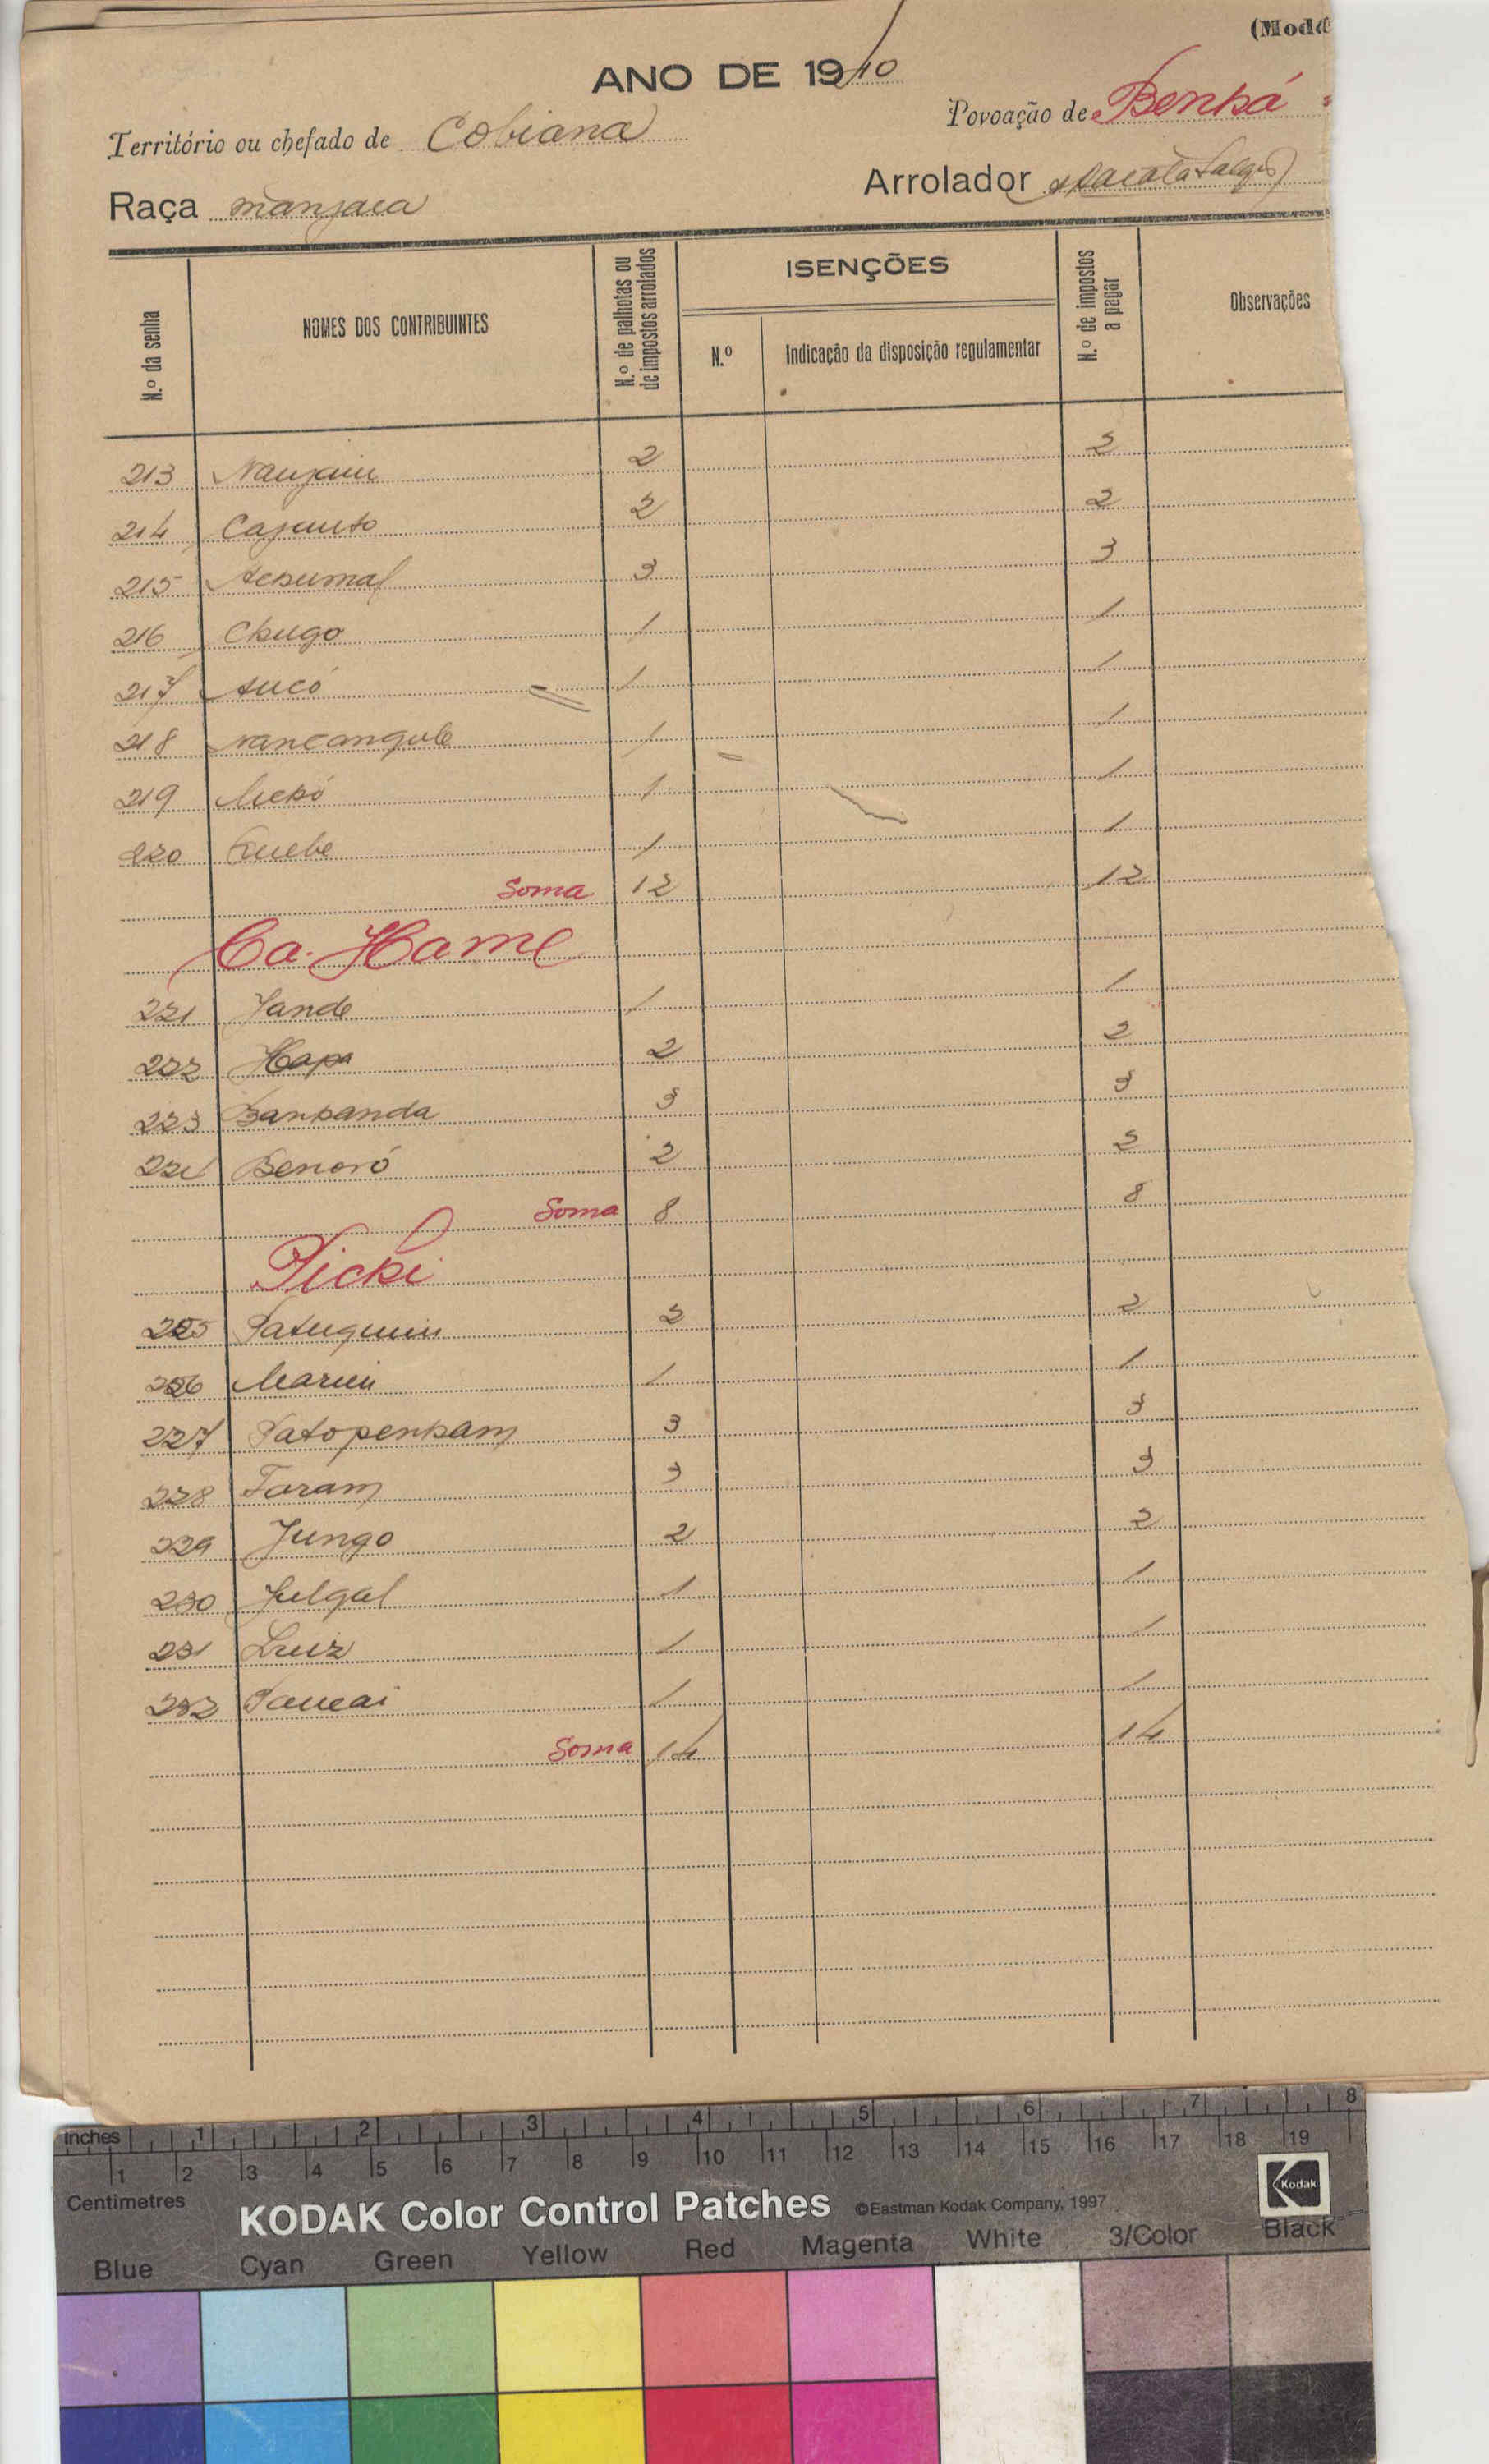 (Mod
ANO DE 1940
Território ou chefado de Cobiana
Povoação de Benhá
Raça manjaca
Arrolador
N.º da senha
NOMES DOS CONTRIBUINTES
N.º de palhotas ou de impostos arrolados
ISENÇÕES
N.º
Indicação da disposição regulamentar
N.º de impostos a pagar
Observações
213 2 2
214 Cajanto 2 2
215 3 3
216 Chugo 1 1
217 1 1
218 Nancangule 1 1
219 1 1
220 Quebe 1 1
Soma 12 12
Ca-Hame
221 Jande 1 1
222 Hapa 2 2
223 Banhanda 3 3
224 Benoró 2 2
Soma 8 8
225 2 2
226 1 1
227 Patopenham 3 3
228 Faram 3 3
229 Jungo 2 2
230 Julgal 1 1
231 Luiz 1 1
232 1 1
Soma 14 14
inches 1 2 3 4 5 6 7 8
1 2 3 4 5 6 7 8 9 10 11 12 13 14 15 16 17 18 19
Centimetres
KODAK Color Control Patches ©Eastman Kodak Company, 1997
Kodak
Blue Cyan Green Yellow Red Magenta White 3/Color Black